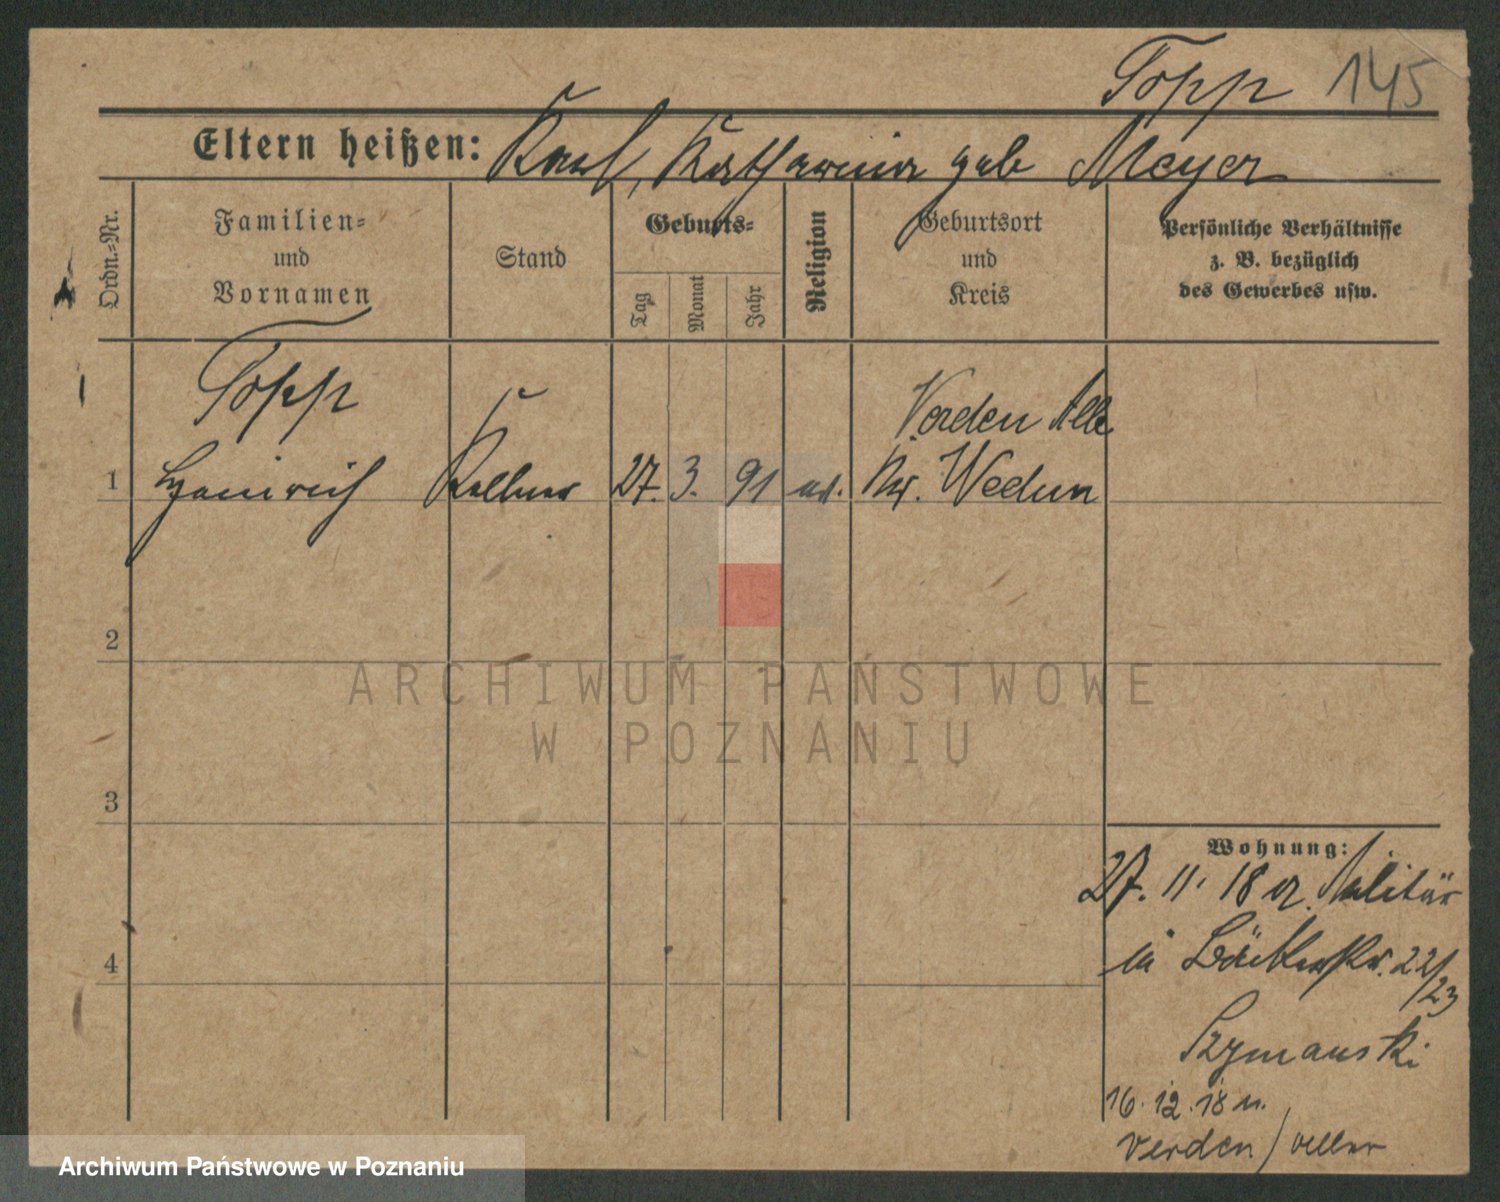 Topp 145
Eltern heißen: Karl, Katharina geb Meyer
Ordn.-Nr.
Familien-
und
Vornamen
Stand
Geburts-
Tag
Monat
Jahr
Religion
Geburtsort
und
Kreis
Persönliche Verhältnisse
z. B. bezüglich
des Gewerbes usw.
Topp
Verden Alle
1 Heinrich Kellner 27. 3. 91 ev. Kr.
2
ARCHIWUM PAŃSTWOWE
W POZNANIU
3
Wohnung:
27. 11. 18 v. Militär
in Bäckerstr. 22/
/23
4
Szymanski
16.12.18 n.
Verden / Aller
Archiwum Państwowe w Poznaniu